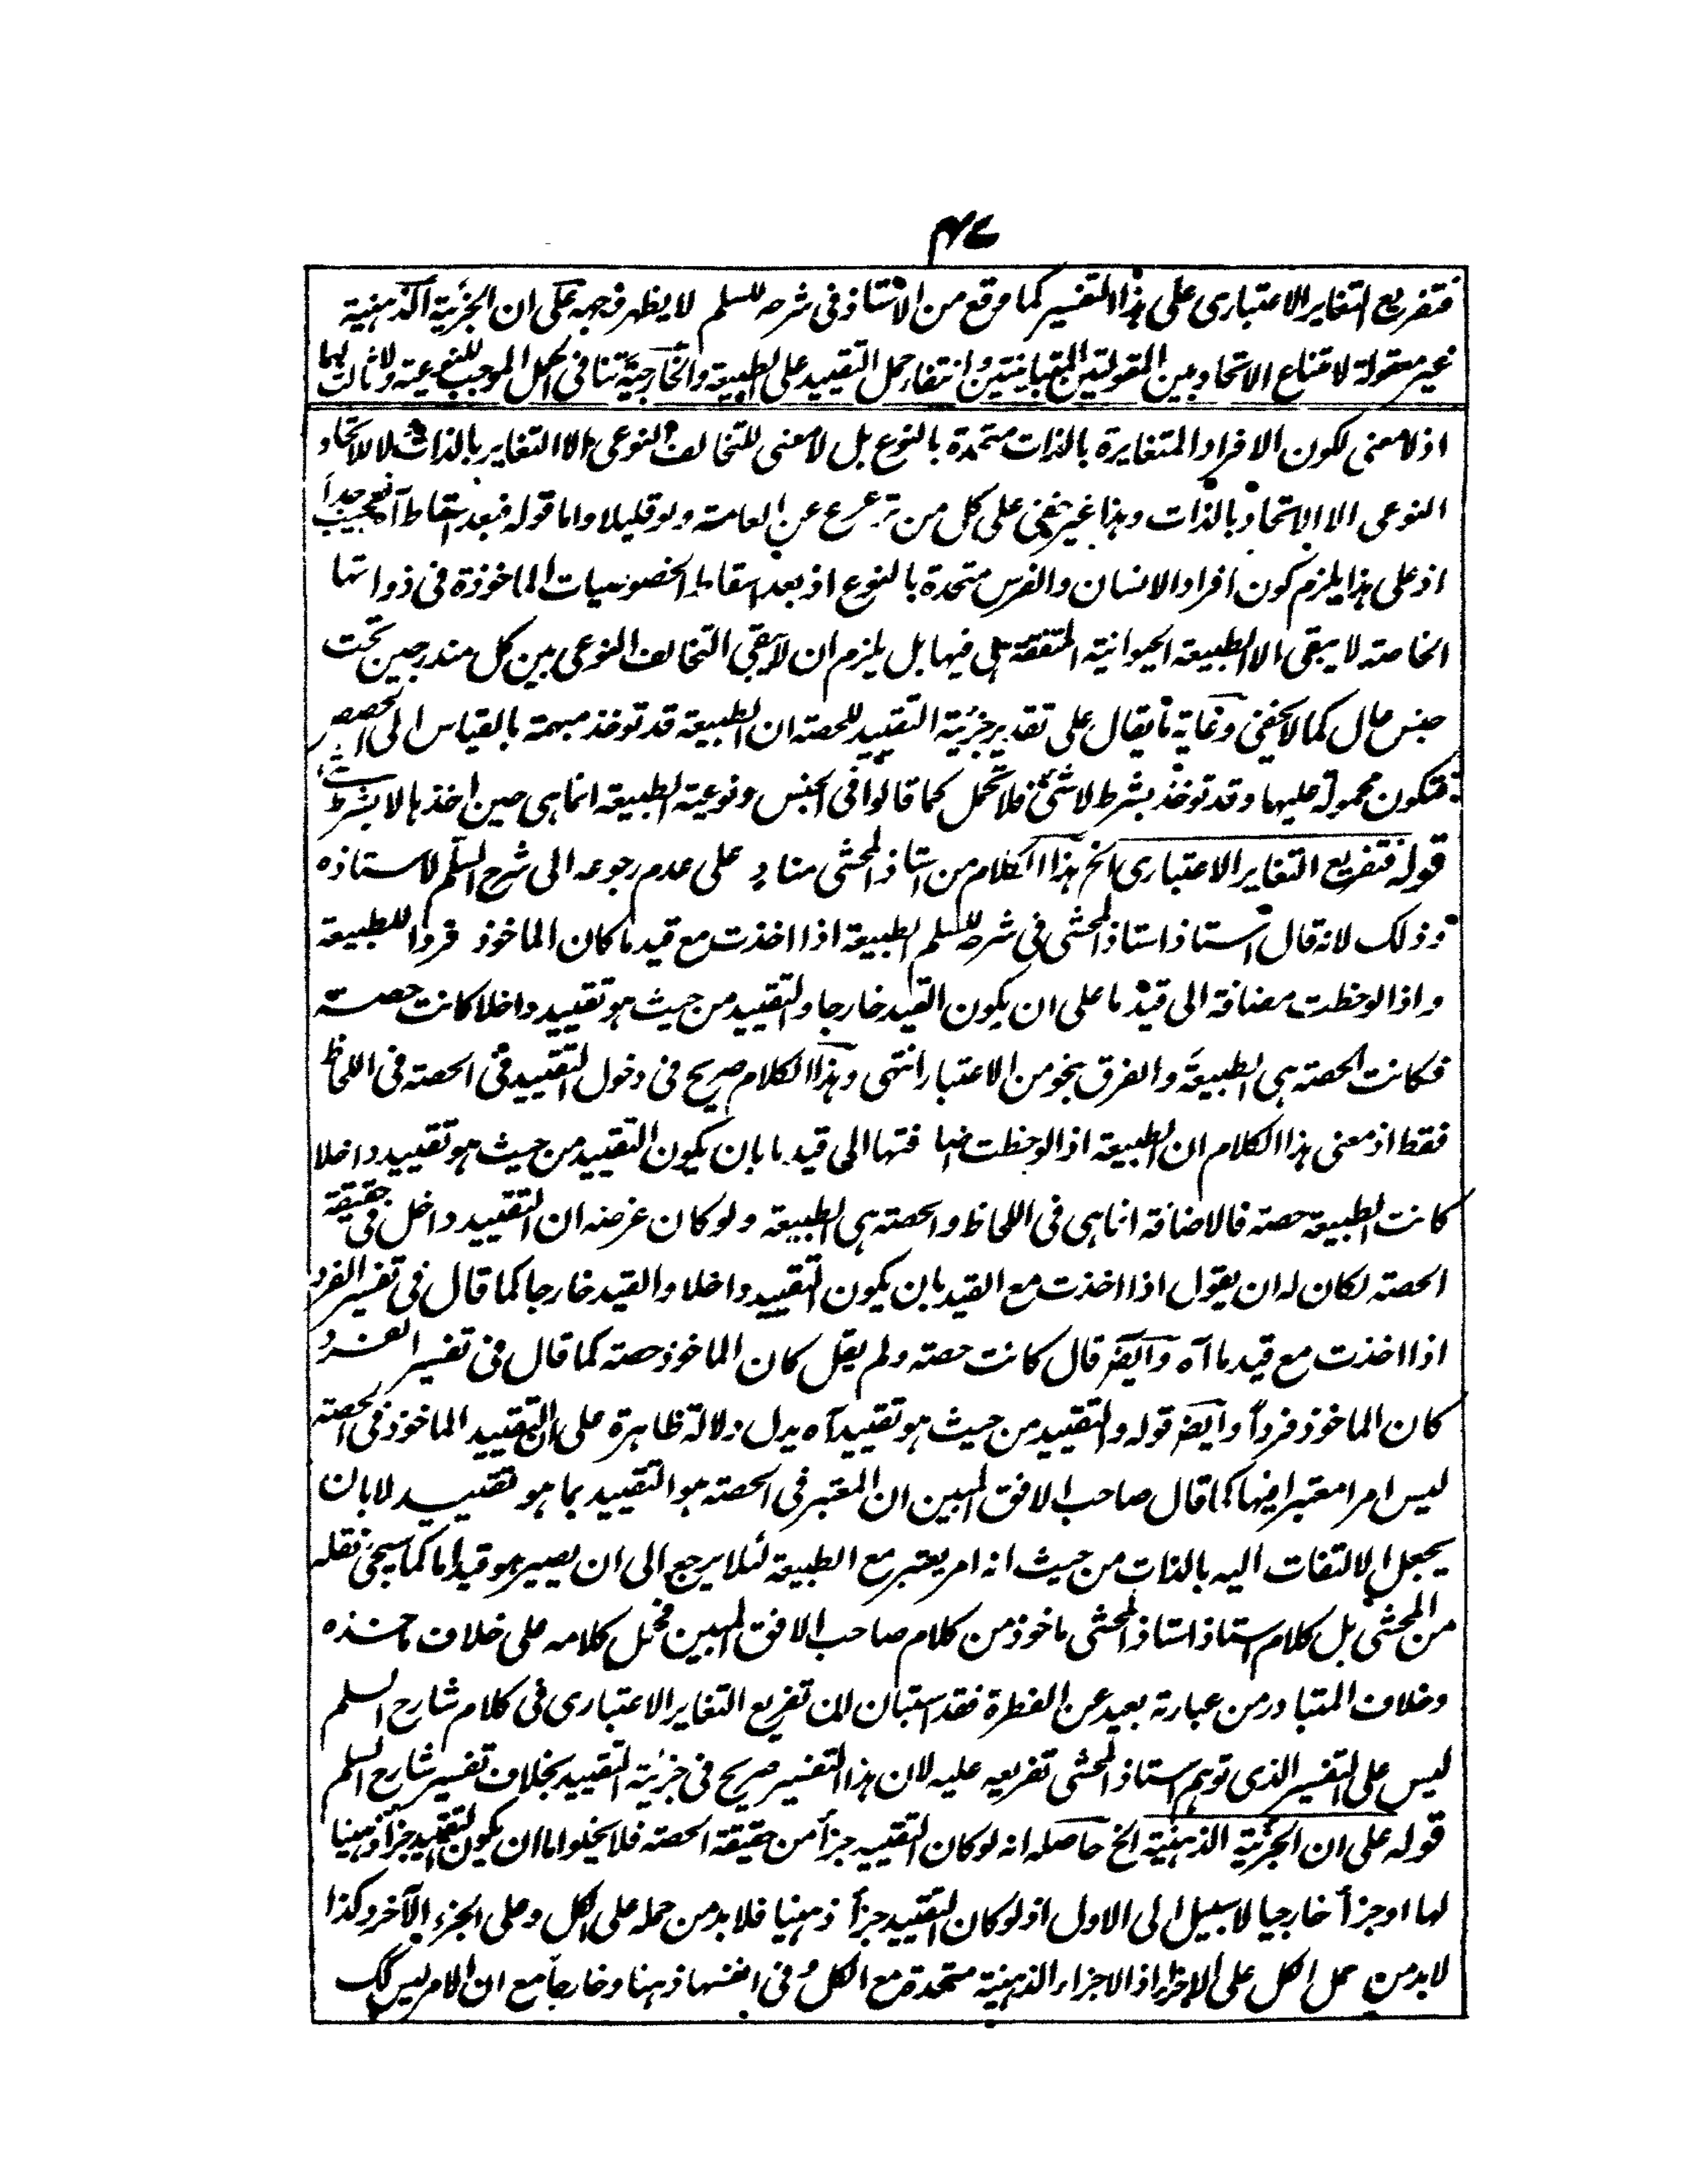 ٤٧
فتفريع التغاير الاعتبارى على هذا التفسير كما وقع من الاستاذ فى شرحه للسلم لا يظهر وجهه على ان الجزئية الذهنية
غير معقولة لامتناع الاتحاد بين المقولتين المتباينتين وانتفاء حمل التقييد على الطبيعة والخارجية تنافى الحمل الموجب للنوعية ولا ثالث لهما
اذ لا معنى لكون الافراد المتغايرة بالذات متحدة بالنوع بل لا معنى للتخالف النوعى الا التغاير بالذات ولا للاتحاد
النوعى الا الاتحاد بالذات وهذا غير خفى على كل من ترعرع عن العامة ولو قليلا واما قوله فبعد اسقاط آه فعجيب جدا
اذ على هذا يلزم كون افراد الانسان والفرس متحدة بالنوع اذ بعد اسقاط الخصوصيات الماخوذة فى ذواتها
الخاصة لا يبقى الا الطبيعة الحيوانية المتفقة هى فيها بل يلزم ان لا يبقى التخالف النوعى بين كل مندرجين تحت
جنس عال كما لا يخفى وغاية ما يقال على تقدير جزئية التقييد للحصة ان الطبيعة قد توخذ مبهمة بالقياس الى الحصص
فتكون محمولة عليها وقد توخذ بشرط لا شئ فلا تحمل كما قالوا فى الجنس ونوعية الطبيعة انما هى حين اخذها لا بشرط شئ
قوله فتفريع التغاير الاعتبارى الخ هذا الكلام من استاذ المحشى مناد على عدم رجوعه الى شرح السلم لاستاذه
وذلك لانه قال استاذ استاذ المحشى فى شرحه للسلم الطبيعة اذا اخذت مع قيد ما كان الماخوذ فردا للطبيعة
واذا لوحظت مضافة الى قيد ما على ان يكون القيد خارجا والتقييد من حيث هو تقييد داخلا كانت حصته
فكانت الحصته هى الطبيعة والفرق بنحو من الاعتبار انتهى وهذا الكلام صريح فى دخول التقييد فى الحصته فى اللحاظ
فقط اذ معنى هذا الكلام ان الطبيعة اذا لوحظت اضافتها الى قيد ما بان يكون التقييد من حيث هو تقييد داخلا
كانت الطبيعة حصته فالاضافة انما هى فى اللحاظ والحصته هى الطبيعة ولو كان غرضه ان التقييد داخل فى حقيقة
الحصته لكان له ان يقول اذا اخذت مع القيد بان يكون التقييد داخلا والقيد خارجا كما قال فى تفسير الفرد
اذا اخذت مع قيد ما آه وايضر قال كانت حصته ولم يقل كان الماخوذ حصته كما قال فى تفسير الفرد
كان الماخوذ فردا وايضر قوله والتقييد من حيث هو تقييد آه يدل دلالة ظاهرة على ان التقييد الماخوذ فى الحصته
ليس امرا معتبرا فيها كما قال صاحب الافق المبين ان المعتبر فى الحصته هو التقييد بما هو تقييد لا بان
يجعل الالتفات اليه بالذات من حيث انه امر يعتبر مع الطبيعة لئلا يرجع الى ان يصير هو قيدا ما كما سيجئ نقله
من المحشى بل كلام استاذ استاذ المحشى ماخوذ من كلام صاحب الافق المبين فحمل كلامه على خلاف ماخذه
وخلاف المتبادر من عبارته بعيد عن الفطرة فقد استبان ان تفريع التغاير الاعتبارى فى كلام شارح السلم
ليس على التفسير الذى توهم استاذ المحشى تفريعه عليه لان هذا التفسير صريح فى جزئية التقييد بخلاف تفسير شارح السلم
قوله على ان الجزئية الذهنية الخ حاصله انه لو كان التقييد جزأ من حقيقة الحصته فلا يخلو اما ان يكون التقييد جزأ ذهنيا
لها او جزأ خارجيا لا سبيل الى الاول اذ لو كان التقييد جزأ ذهنيا فلا بد من حمله على الكل وعلى الجزء الآخر وكذا
لا بد من حمل الكل على الاجزاء اذ الاجزاء الذهنية متحدة مع الكل وفى انفسها ذهنا وخارجا مع ان الامر ليس كك